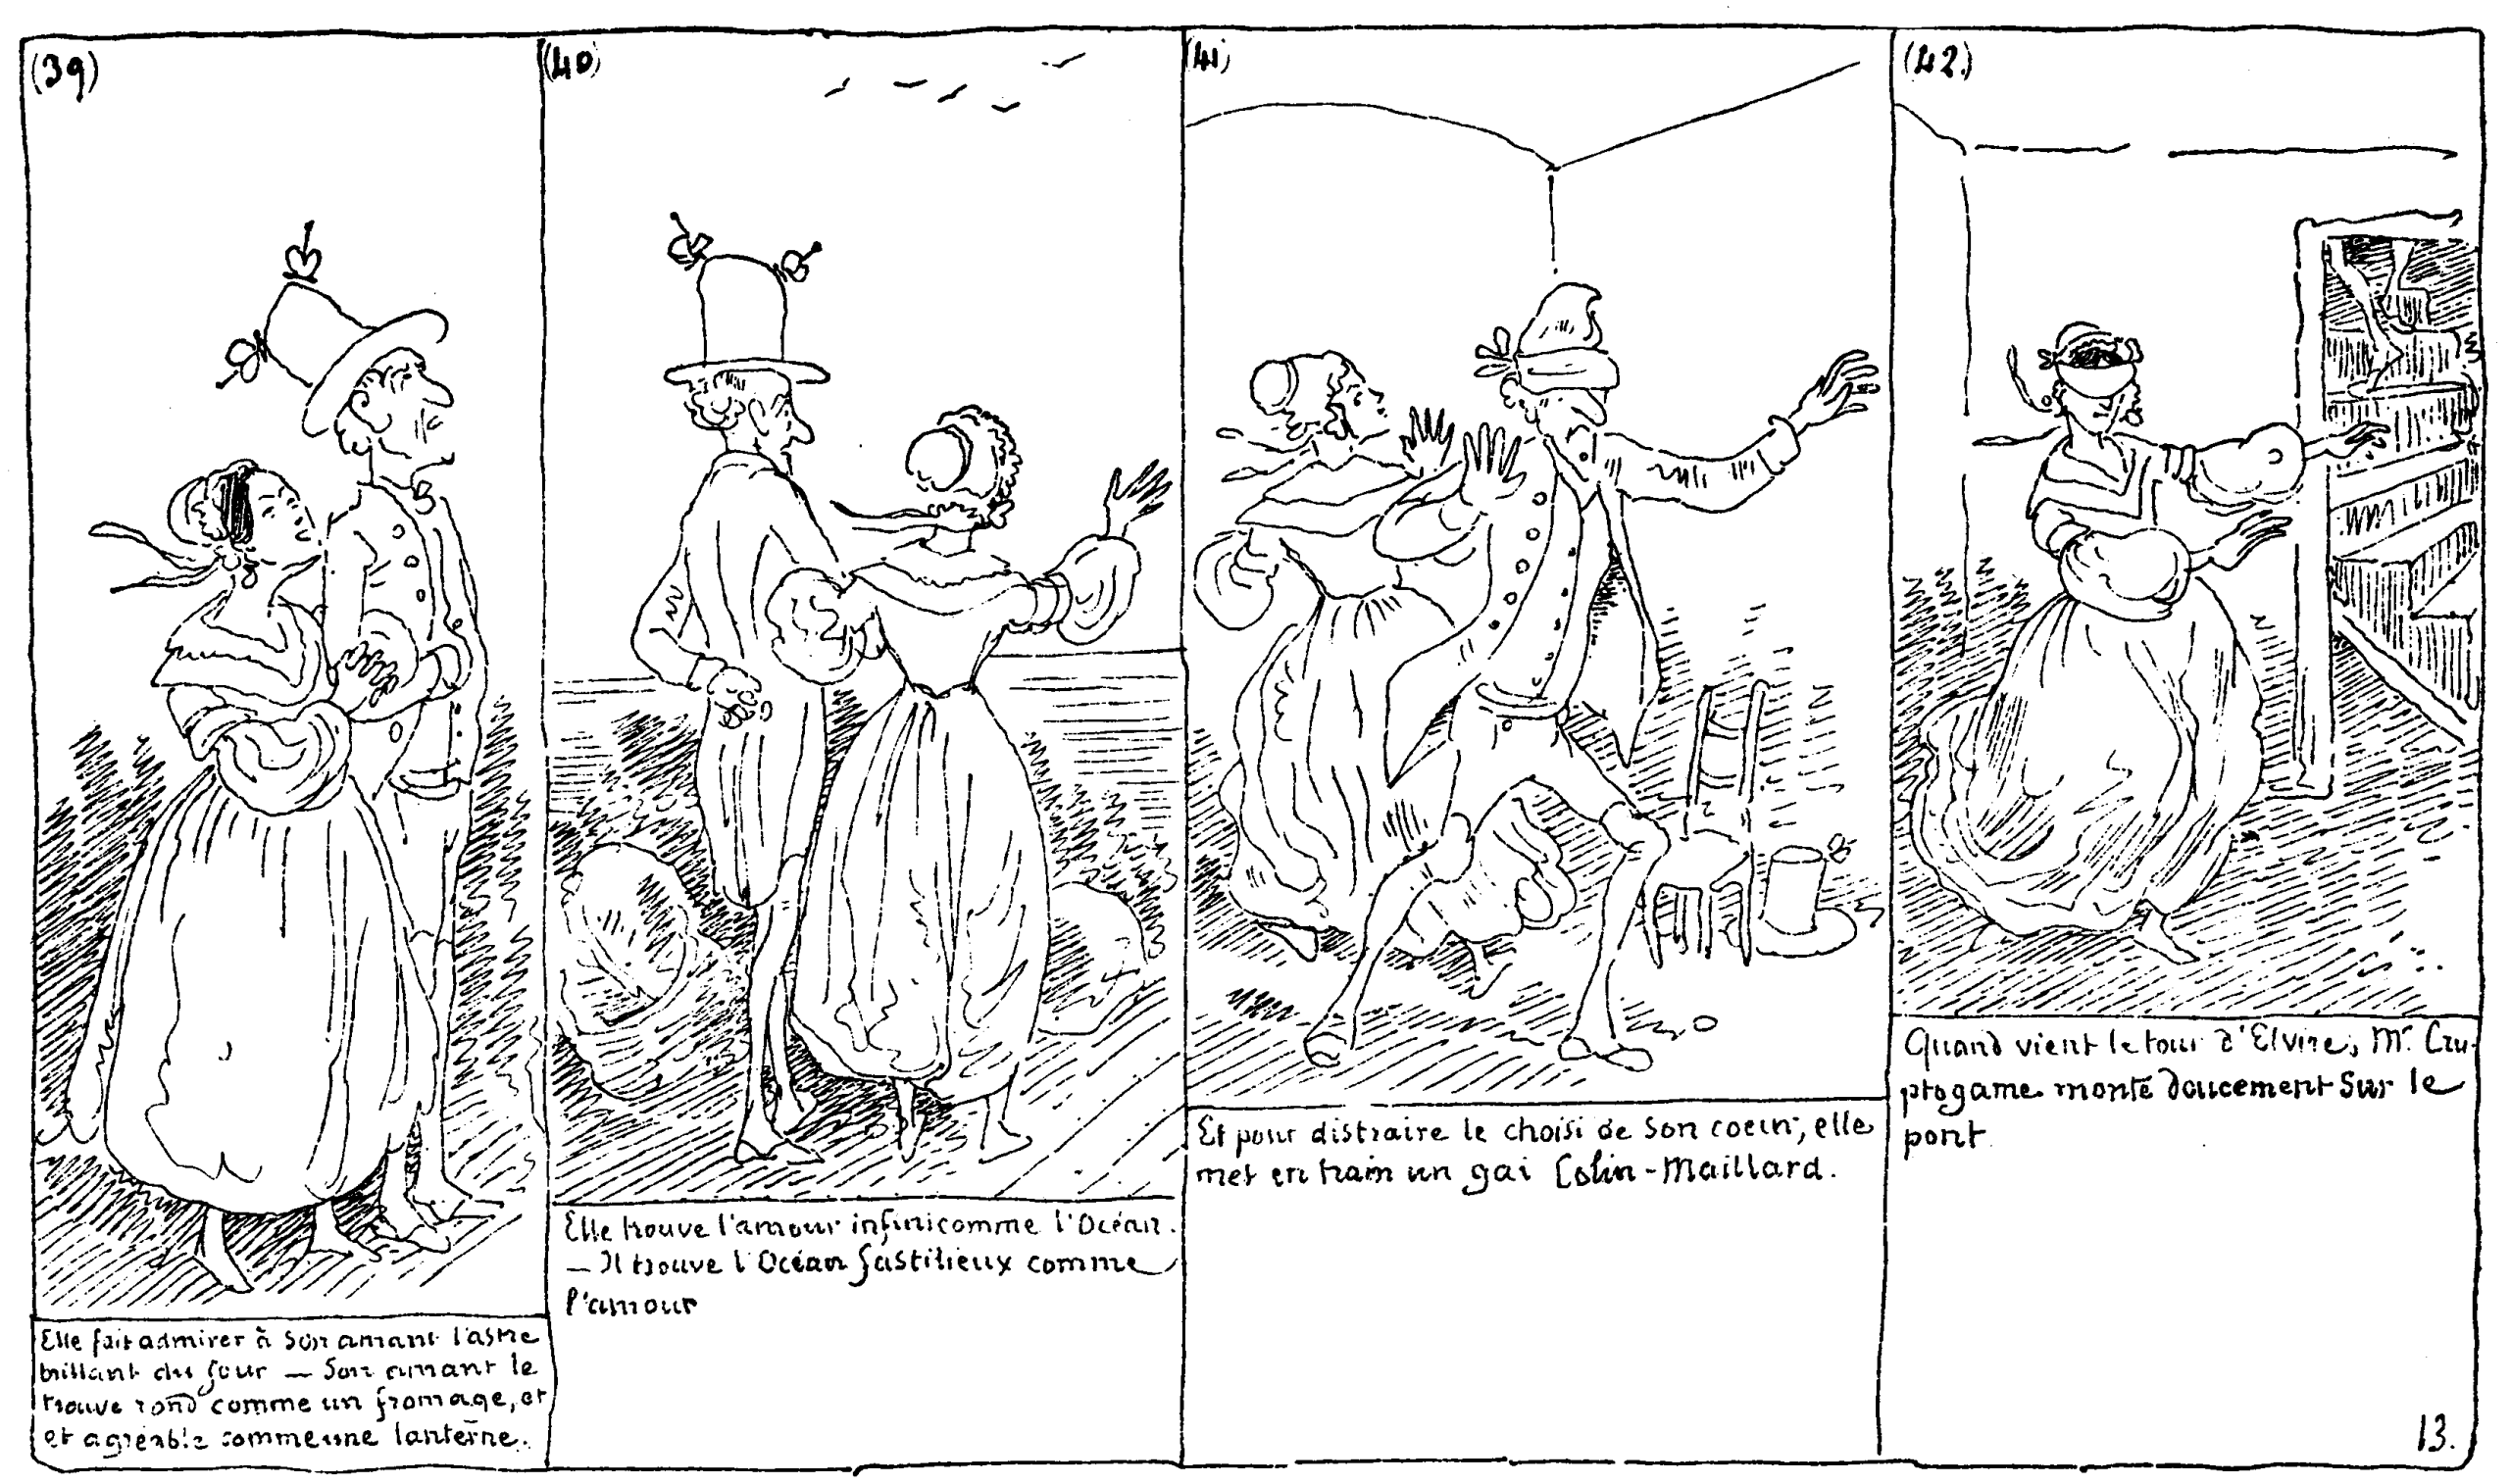 (39)
Elle fait admirer à son amant l'astre
brillant du jour — Son amant le
trouve rond comme un fromage, et
et agréable comme une lanterne.
(40)
Elle trouve l'amour infini comme l'Océan.
— Il trouve l'Océan fastidieux comme
l'amour
(41)
Et pour distraire le choisi de son coeur, elle
met en train un gai Colin-Maillard.
(42.)
Quand vient le tour d'Elvire, Mr. Cry-
ptogame monte doucement sur le
pont
13.